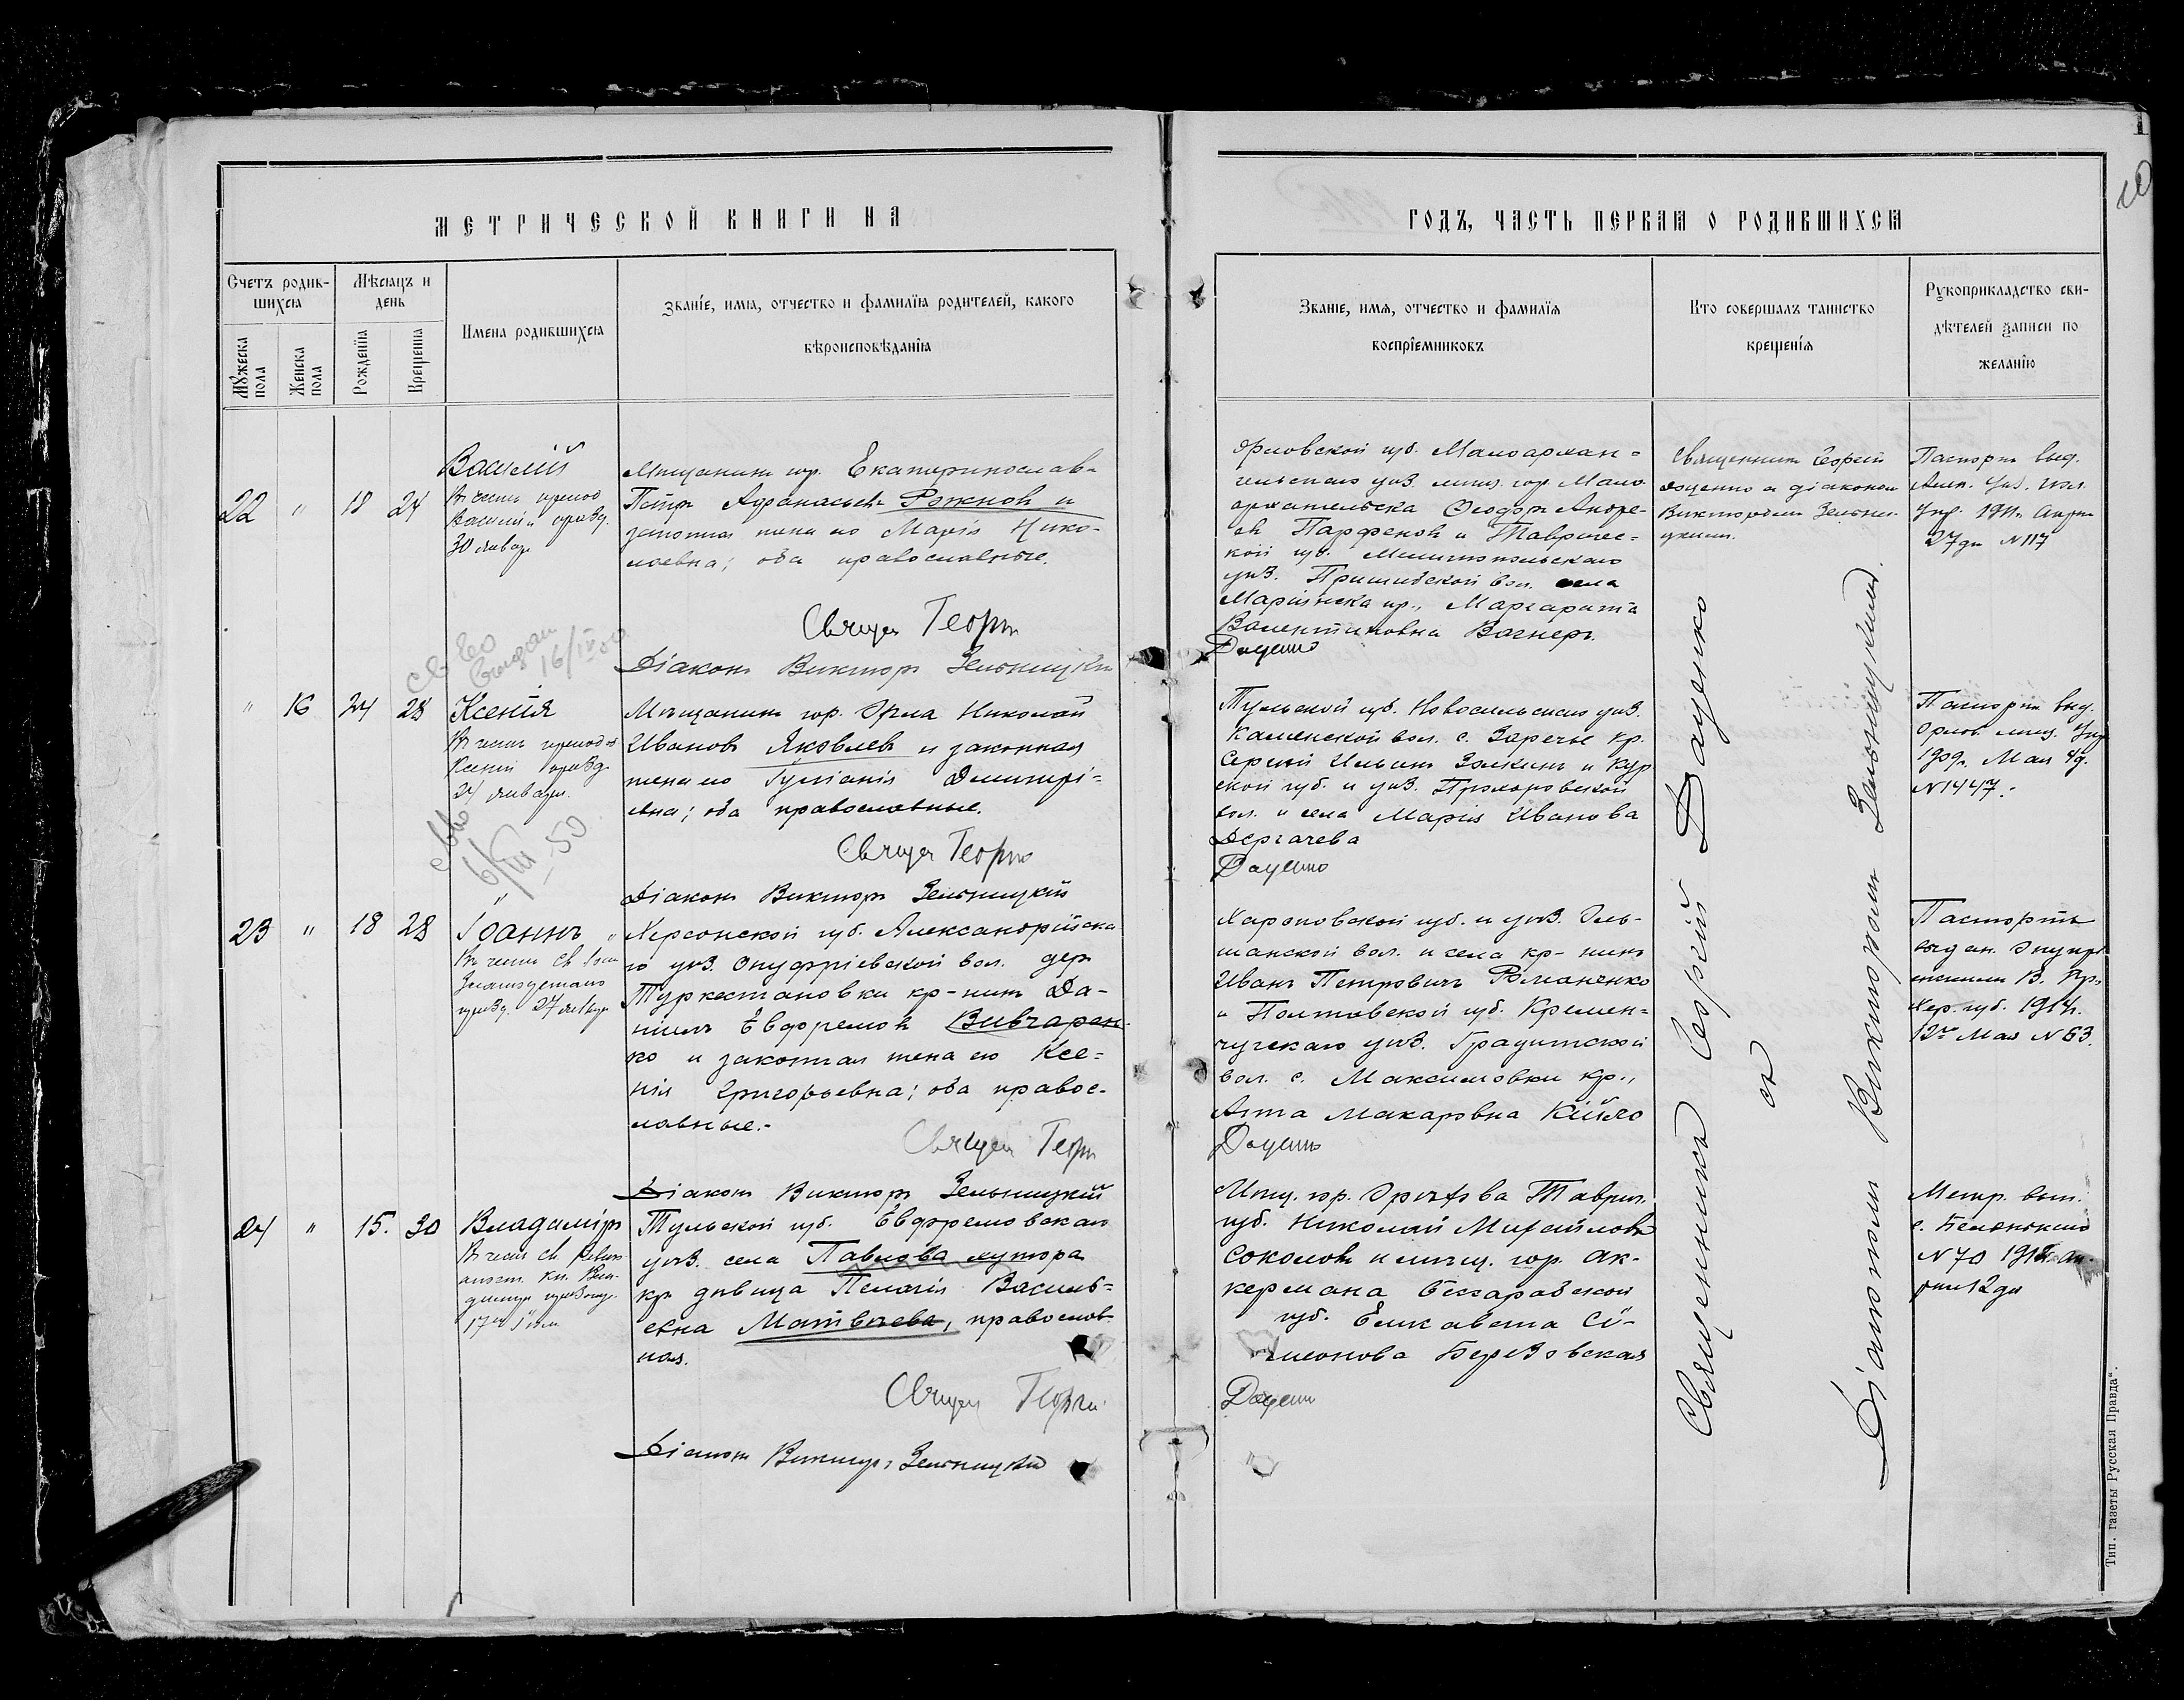 МЕТРИЧЕСКОЙ КНИГИ НА
ГОДЪ, ЧАСТЬ ПЕРВАЯ О РОДИВШИХСЯ
Счетъ родив-
шихся
Мѣсяцъ и
день
Мужеска
пола
Женска
пола
Рожденія
Крещенія
Имена родившихся
Званіе, имя, отчество и фамилія родителей, какого
вѣроисповѣданія
Званіе, имя, отчество и фамилія
воспріемниковъ
Кто совершалъ таинство
крещенія
Рукоприкладство сви-
дѣтелей записи по
желанію
22 " 18 24
Василій
Въ честь препод
Василія празд.
30 января
Мѣщанинъ гор. Екатеринослав-
Петръ Афанасьевъ Рожновъ и
законная жена его Марія Нико-
лаевна; оба православные.
Священ Георгій
Діаконъ Викторъ Зельницкій
Орловской губ. Малоархан-
гельскаго уѣз. мѣщ. гор. Мало
архангельска Ѳеодоръ Андре-
евъ Парфеновъ и Тавричес-
кой губ. Мелитопольскаго
уѣз. Пришибской вол. села
кр., Маргарита
Валентиновна Вагнеръ.
Доценко
Священникъ Георгій
Доценко и діакономъ
Викторомъ Зельни-
цкимъ.
Паспортъ выд.
27 дн № 117
" 16 24 28
Ксенія
Въ честь препод
Ксеніи празд.
24 января.
Мѣщанинъ гор. Орла Николай
Ивановъ Яковлевъ и законная
жена его Іуліанія Димитрі-
евна; оба православные.
Священ Георгій
Діаконъ Викторъ Зельницкій
Тульской губ. Новосильскаго уѣз.
Каменской вол. с. Заречье кр.
Сергѣй Ильинъ Золкинъ и Кур
ской губ. и уѣз. Прохоровской
вол. и села Марія Иванова
Дергачева
Доценко
Паспортъ выд.
Орлов. мѣщ. Упр
1909 г. Мая 4 д.
№ 1447.
св-во
выдан
16/IV
св-во
6/VIII-50
23 " 18 28
Іоаннъ
Въ честь Св. Іоан
Златоустаго
празд. 27 января
Херсонской губ. Александрійска
го уѣз. Онуфріевской вол. дер
Туркестановки кр-нинъ Да-
ніилъ Евфремовъ Вивчарен-
ко и законная жена его Ксе-
нія Григорьевна; оба правос-
лавные.-
Священ Георгій
Діаконъ Викторъ Зельницкій
Харьковской губ. и уѣз. Оль-
шанской вол. и села кр-нинъ
Иванъ Петровичъ Романенко
и Полтавской губ. Кремен-
чугскаго уѣз. Градижской
вол. с. Максимовки кр.,
Анна Макаровна Кійло
Доценко
Паспортъ
выдан. Онуфрі
евскимъ В. Пр.
Хер. губ. 1914 г.
12го Мая № 63.
24 " 15. 30
Владиміръ
Въ честь Св. Равно
апост. Кн. Вла-
диміра праздн.
17го Іюля
Тульской губ. Евфремовскаго
уѣз. села Павлова хутора
кр. дѣвица Пелагія Василь-
евна Матвѣева, православ-
ная.
Священ Георгій
Діаконъ Викторъ Зельницкій
Мѣщ. гор. Орѣхова Таврич.
губ. Николай Михайловъ
Соколовъ и мѣщ. гор. Ак-
кермана Бессарабской
губ. Елисавета Сѵ-
меонова Березовская
Доценко
Метр. вып.
№ 70 191
реля 12 дн
Священникъ Георгій Доценко
съ
Діакономъ Викторомъ Зельницкимъ.
Тип. газеты Русская Правда".